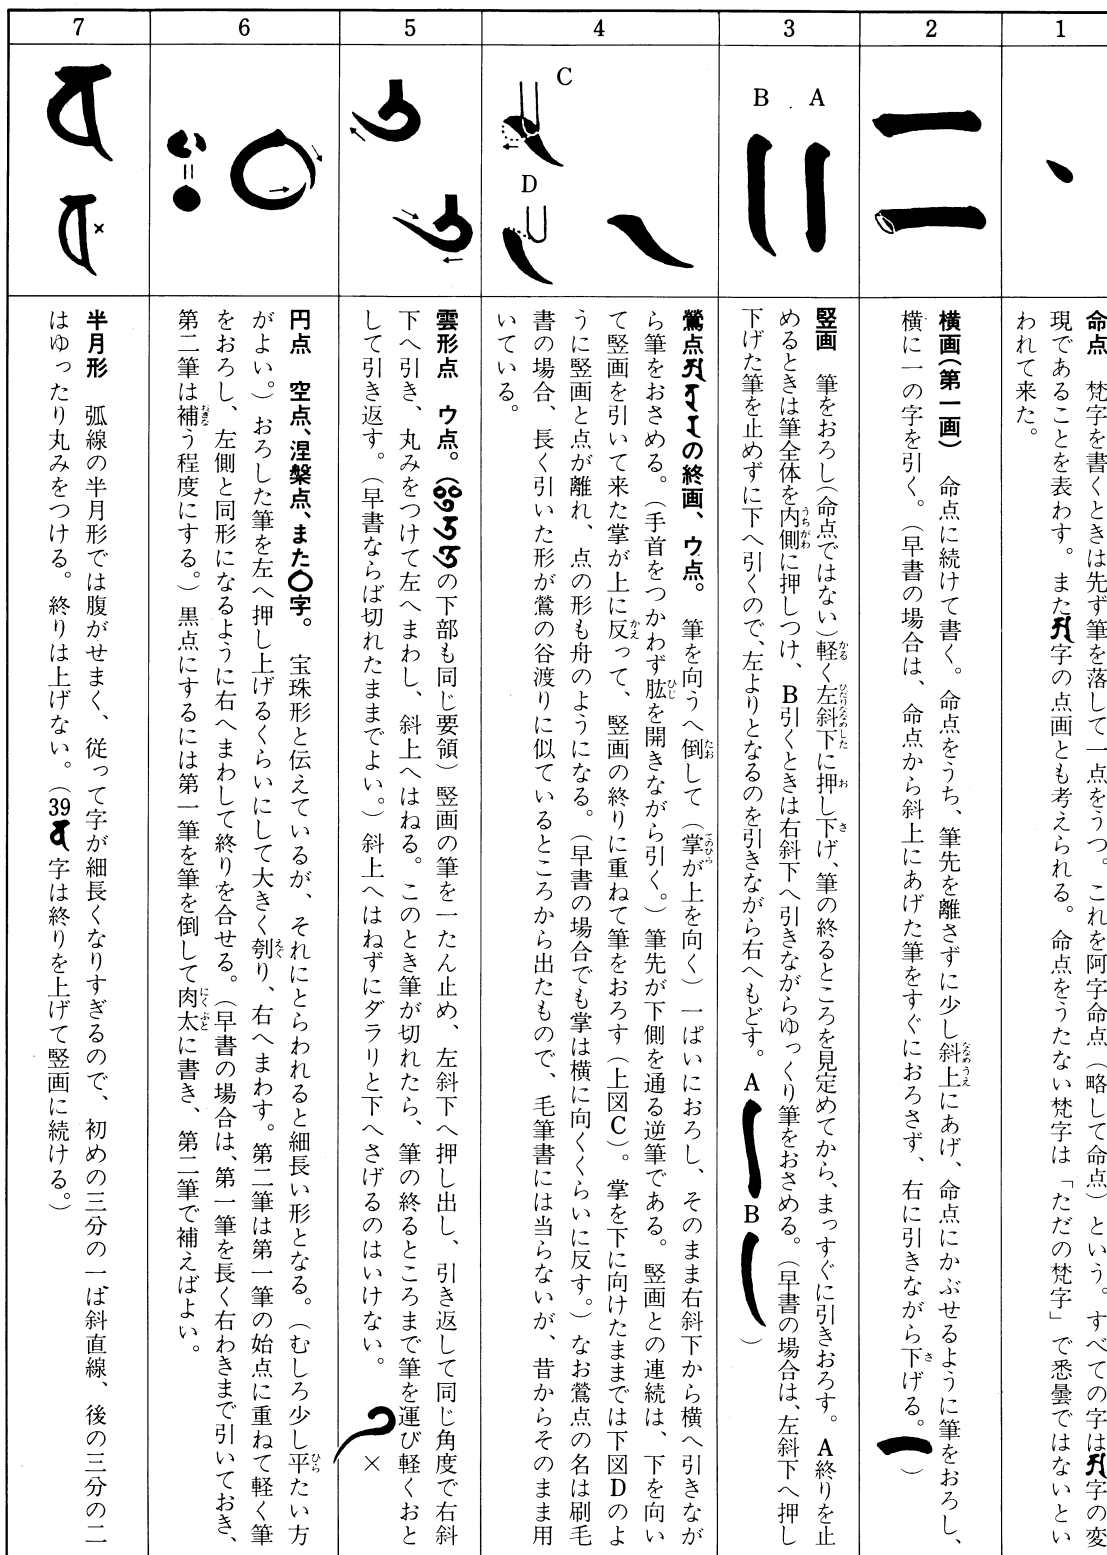 1
命点　梵字を書くときは先ず筆を落して一点をうつ。これを阿字命点（略して命点）という。すべての字は字の変
現であることを表わす。また字の点画とも考えられる。命点をうたない梵字は「ただの梵字」で悉曇ではないとい
われて来た。
2
横画（第一画）　命点に続けて書く。命点をうち、筆先を離さずに少し斜上にあげ、命点にかぶせるように筆をおろし、
横に一の字を引く。（早書の場合は、命点から斜上にあげた筆をすぐにおろさず、右に引きながら下げる。）
3
A
B
竪画　筆をおろし（命点ではない）軽く左斜下に押し下げ、筆の終るところを見定めてから、まっすぐに引きおろす。A終りを止
めるときは筆全体を内側に押しつけ、B引くときは右斜下へ引きながらゆっくり筆をおさめる。（早書の場合は、左斜下へ押し
下げた筆を止めずに下へ引くので、左よりとなるのを引きながら右へもどす。A B）
4
C
D
鶯点の終画、ウ点。　筆を向うへ倒して（掌が上を向く）一ぱいにおろし、そのまま右斜下から横へ引きなが
ら筆をおさめる。（手首をつかわず肱を開きながら引く。）筆先が下側を通る逆筆である。竪画との連続は、下を向い
て竪画を引いて来た掌が上に反って、竪画の終りに重ねて筆をおろす（上図C）。掌を下に向けたままでは下図Dのよ
うに竪画と点が離れ、点の形も舟のようになる。（早書の場合でも掌は横に向くくらいに反す。）なお鶯点の名は刷毛
書の場合、長く引いた形が鶯の谷渡りに似ているところから出たもので、毛筆書には当らないが、昔からそのまま用
いている。
5
雲形点　ウ点。（の下部も同じ要領）竪画の筆を一たん止め、左斜下へ押し出し、引き返して同じ角度で右斜
下へ引き、丸みをつけて左へまわし、斜上へはねる。このとき筆が切れたら、筆の終るところまで筆を運び軽くおと
して引き返す。（早書ならば切れたままでよい。）斜上へはねずにダラリと下へさげるのはいけない。×
6
円点　空点、涅槃点、また〇字。　宝珠形と伝えているが、それにとらわれると細長い形となる。（むしろ少し平たい方
がよい。）おろした筆を左へ押し上げるくらいにして大きく刳り、右へまわす。第二筆は第一筆の始点に重ねて軽く筆
をおろし、左側と同形になるように右へまわして終りを合せる。（早書の場合は、第一筆を長く右わきまで引いておき、
第二筆は補う程度にする。）黒点にするには第一筆を筆を倒して肉太に書き、第二筆で補えばよい。
7
×
半月形　弧線の半月形では腹がせまく、従って字が細長くなりすぎるので、初めの三分の一ば斜直線、後の三分の二
はゆったり丸みをつける。終りは上げない。（39字は終りを上げて竪画に続ける。）